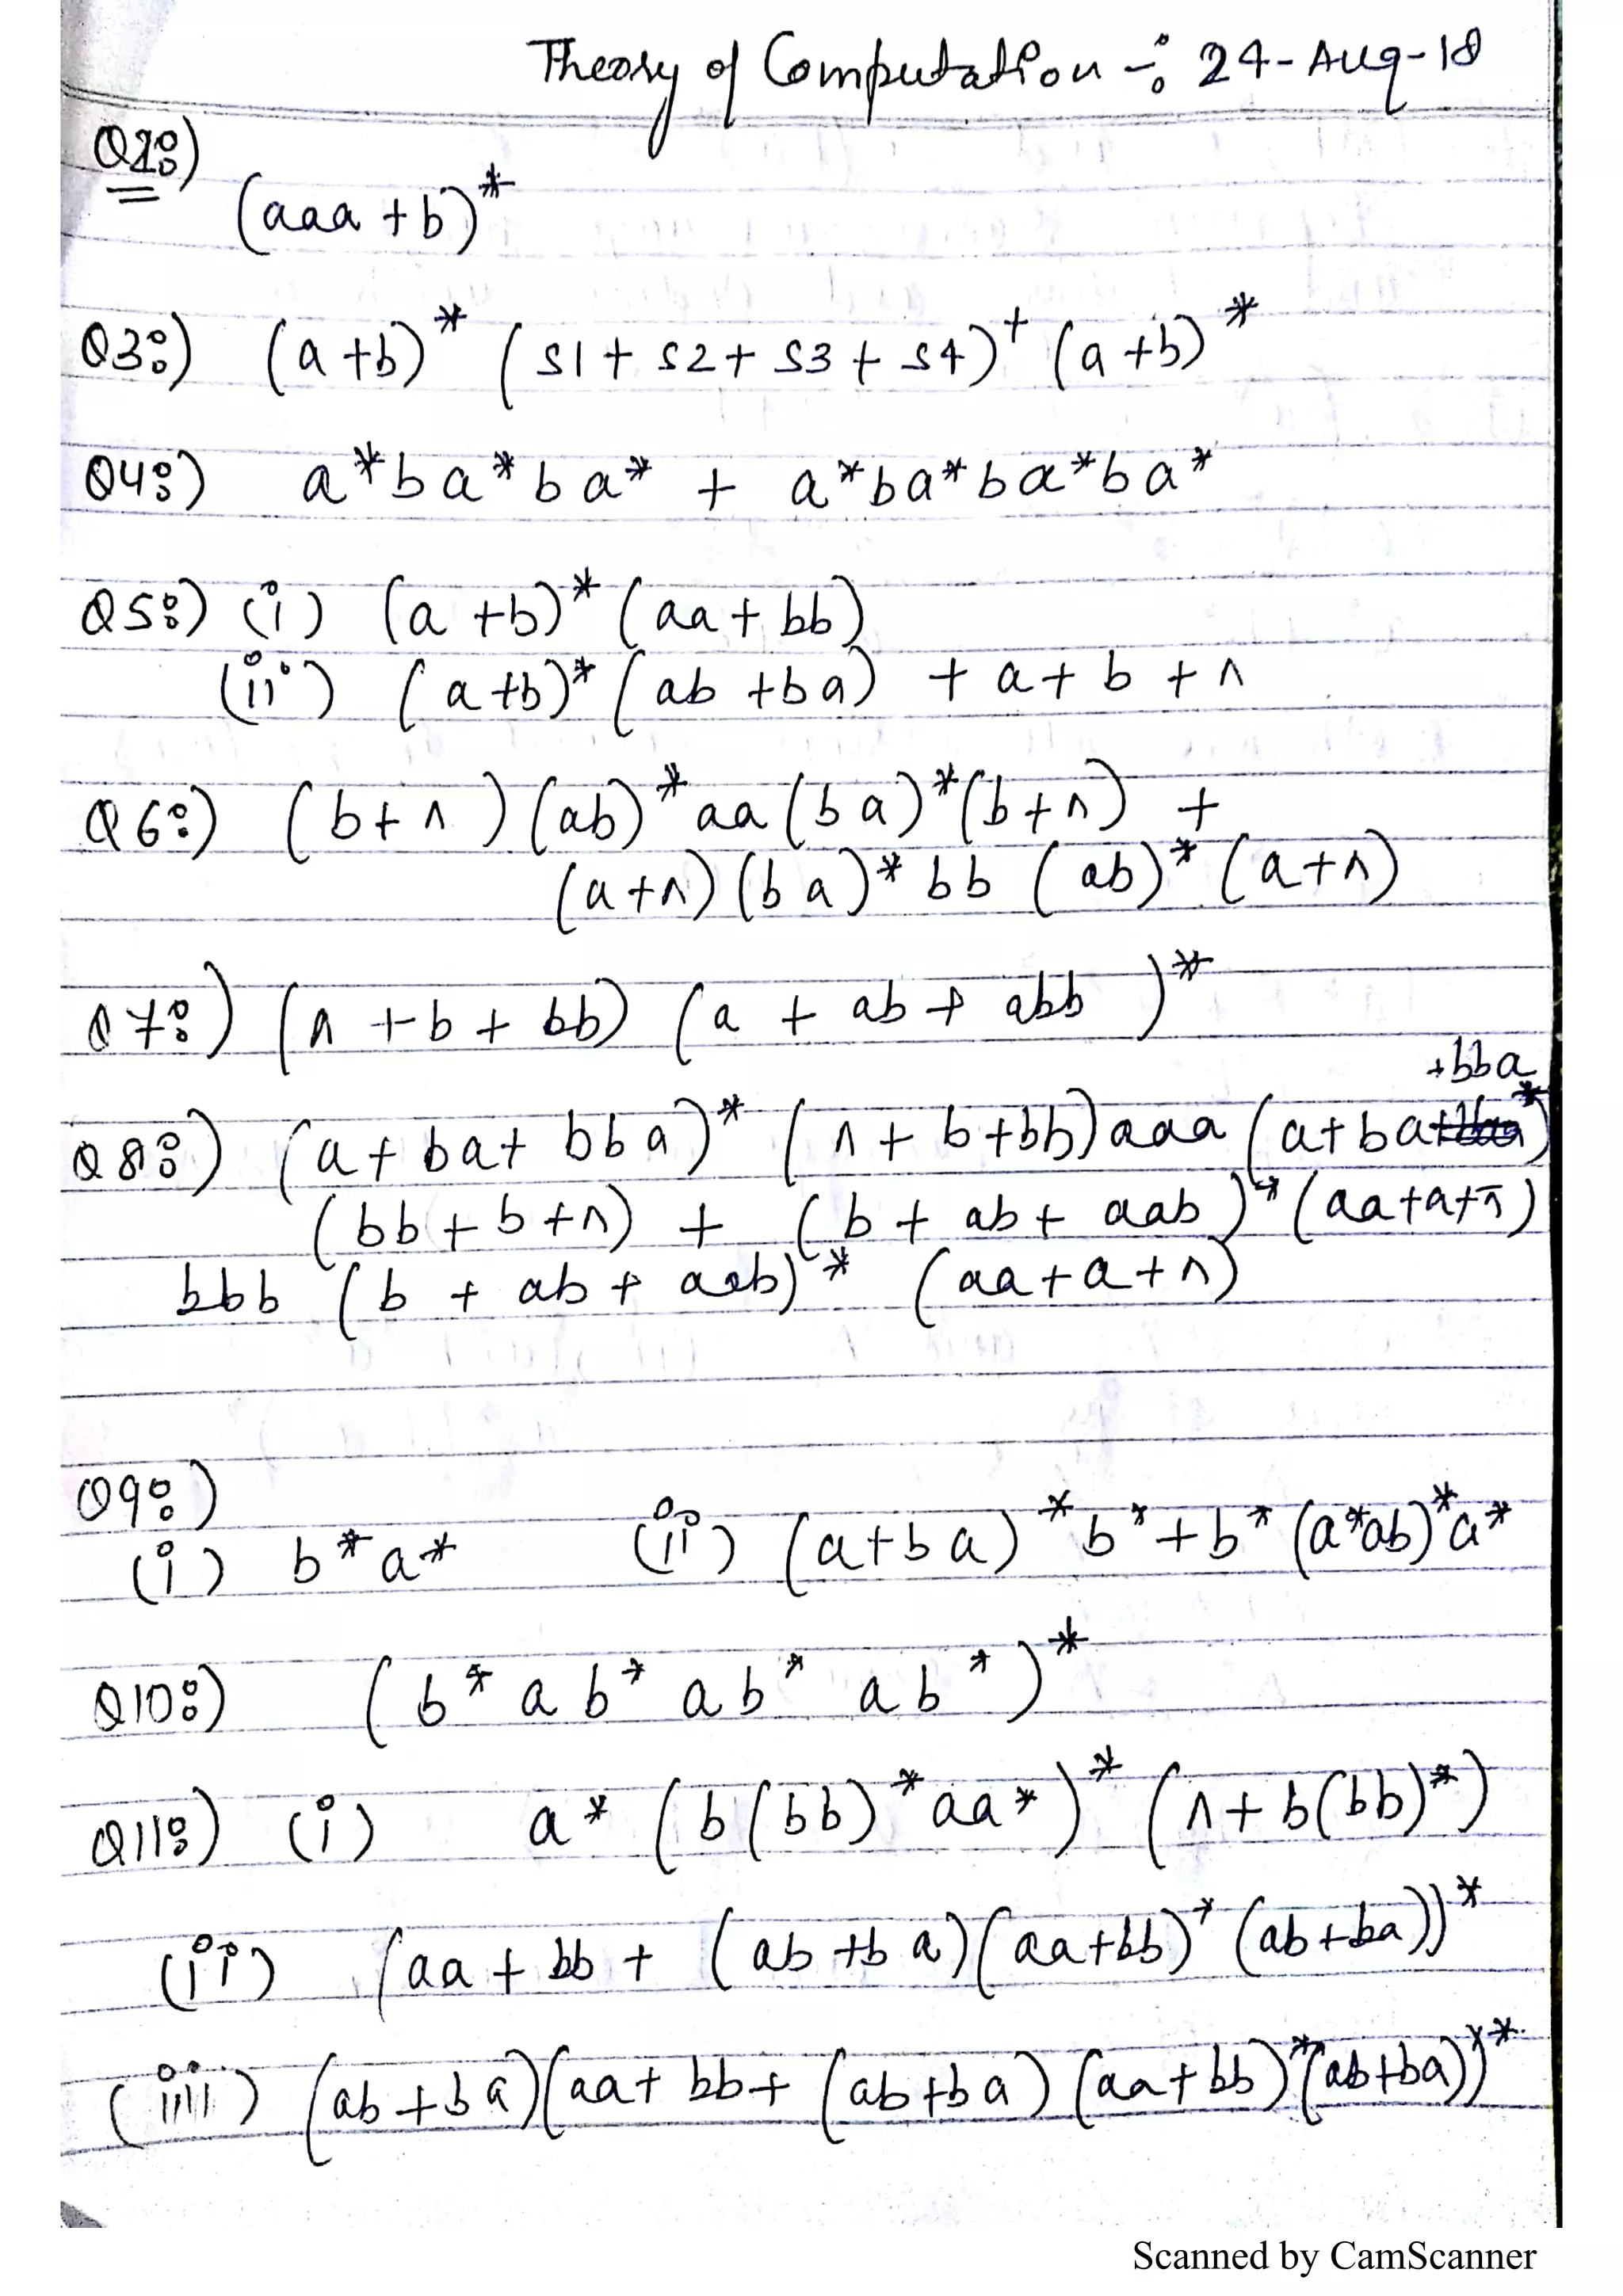 Theory of Computation -: 24-Aug-18
Q2:)
(aaa + b)*
Q3:) (a + b)* (S1 + S2 + S3 + S4)⁺ (a + b)*
Q4:) a*ba*ba* + a*ba*ba*ba*
Q5:) (i) (a + b)* (aa + bb)
(ii) (a + b)* (ab + ba) + a + b + ^
Q6:) (b + ^) (ab)* aa (ba)* (b + ^) +
(a + ^) (ba)* bb (ab)* (a + ^)
Q7:) (^ + b + bb) (a + ab + abb)*
+bba
Q8:) (a + ba + bba)* (^ + b + bb) aaa (a + ba)*
(bb + b + ^) + (b + ab + aab)* (aa + a + ^)
bbb (b + ab + aab)* (aa + a + ^)
Q9:)
(i) b*a* (ii) (a + ba)* b* + b* (a*ab)* a*
Q10:) (b* ab* ab* ab*)*
Q11:) (i) a* (b(bb)* aa*)* (^ + b(bb)*)
(ii) (aa + bb + (ab + ba)(aa + bb)* (ab + ba))*
(iii) (ab + ba)(aa + bb + (ab + ba) (aa + bb)* (ab + ba))**
Scanned by CamScanner